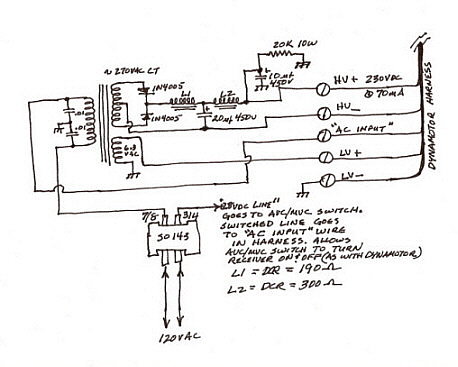 20K 10W
~ 270VAC CT
IN4005
L1
L2
+
10µf
450V
HV+ 230VDC
@ 70mA
.01
.01
IN4005
+
20µf 450V
HV-
"AC INPUT"
6.3
VAC
LV+
LV-
DYNAMOTOR HARNESS
7/8
3/4
SO143
120VAC
"28VDC LINE"
GOES TO AVC/MVC SWITCH.
SWITCHED LINE GOES
TO "AC INPUT" WIRE
IN HARNESS. ALLOWS
AVC/MVC SWITCH TO TURN
RECEIVER ON & OFF (AS WITH DYNAMOTOR)
L1 = DCR = 190Ω
L2 = DCR = 300Ω